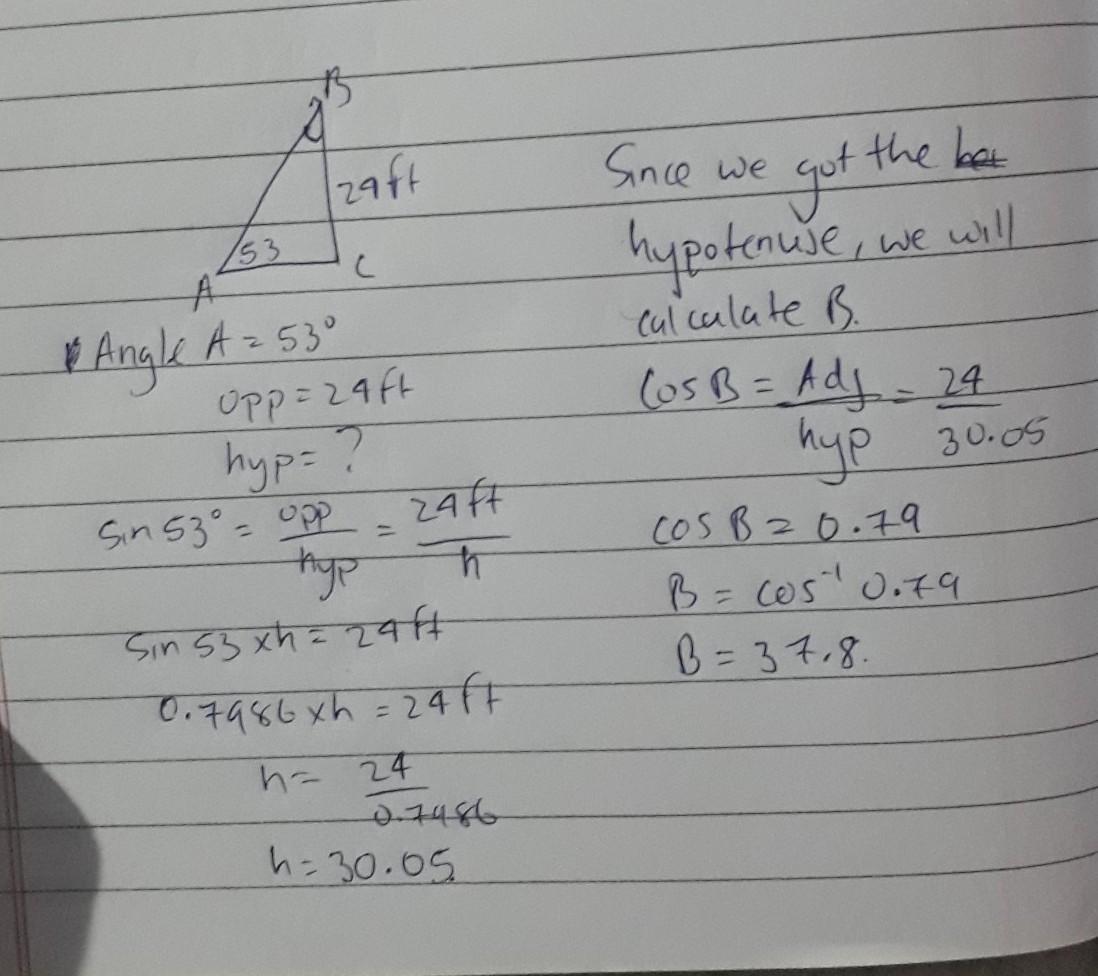 B
24ft
53
A
C
Angle A = 53°
opp = 24ft
hyp = ?
Sin 53° = opp/hyp = 24ft/h
Sin 53 x h = 24ft
0.7986 x h = 24ft
h = 24/0.7986
h = 30.05
Since we got the
hypotenuse, we will
calculate B.
Cos B = Adj/hyp = 24/30.05
cos B = 0.79
B = cos⁻¹ 0.79
B = 37.8.